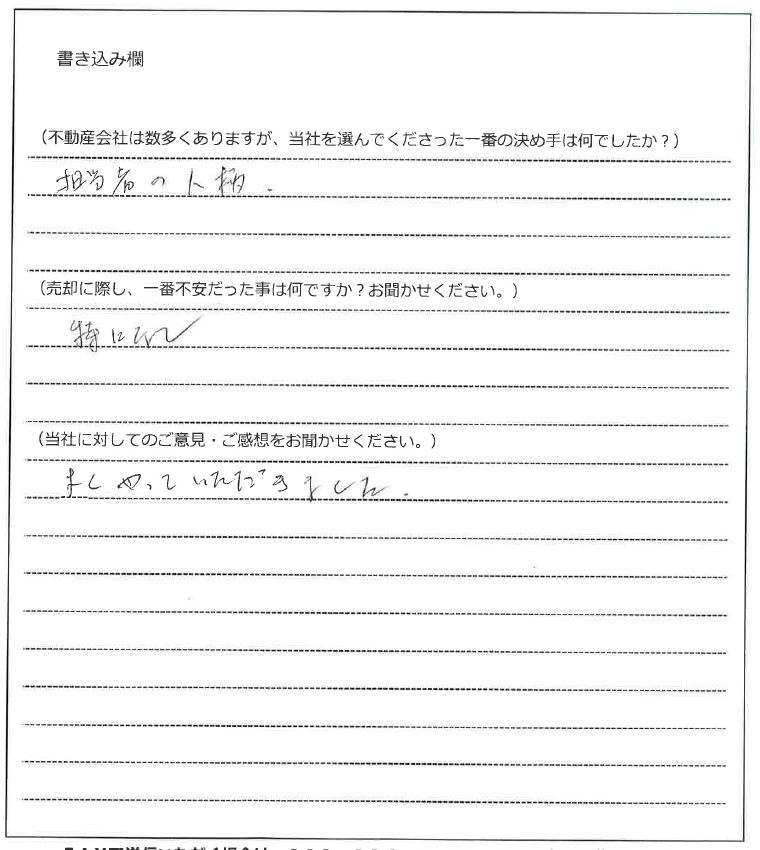 書き込み欄
（不動産会社は数多くありますが、当社を選んでくださった一番の決め手は何でしたか？）
担当者の人柄.
（売却に際し、一番不安だった事は何ですか？お聞かせください。）
特になし
（当社に対してのご意見・ご感想をお聞かせください。）
よくやっていただきました.